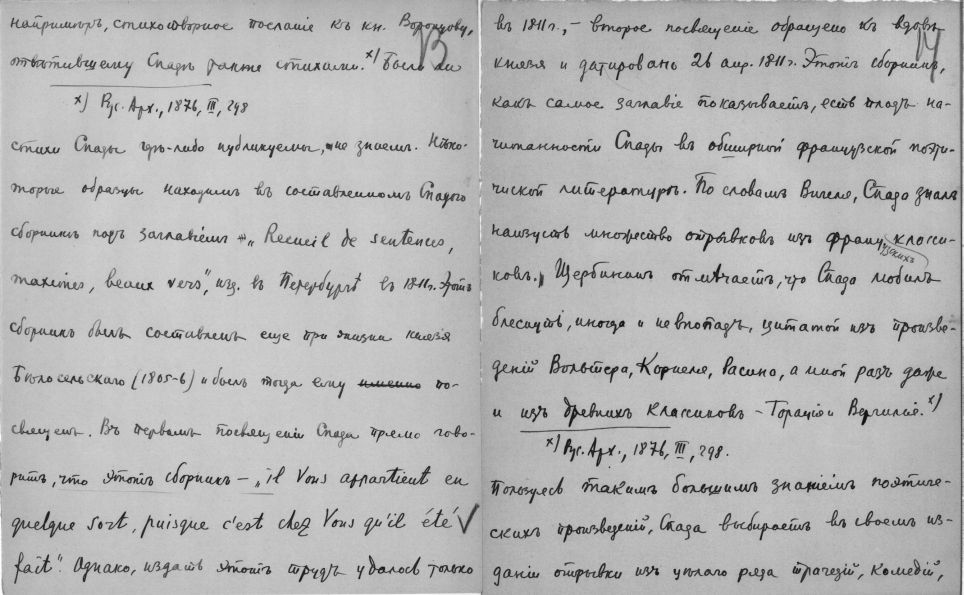 напримѣръ, стихотворное посланіе къ кн. Воронцову,
13
отвѣтившему Спадѣ также стихами. х) Были ли
х) Рус. Арх., 1876, III, 298
стихи Спады гдѣ-либо публикуемы, не знаемъ. Нѣко-
торые образцы находимъ въ составленномъ Спадою
сборникѣ подъ заглавіемъ „Recueil de sentences,
maximes, beaux vers", изд. въ Петербургѣ въ 1811г. Этотъ
сборникъ былъ составленъ еще при жизни князя
Бѣлосельскаго (1805-6) и былъ тогда ему именно по-
священъ. Въ первомъ посвященіи Спада прямо гово-
ритъ, что этотъ сборникъ – „il Vous appartient en
quelque sort, puisque c'est chez Vous qu'il été
fait". Однако, издать этотъ трудъ удалось только
въ 1811г., – второе посвященіе обращено къ вдовѣ
14
князя и датировано 26 апр. 1811г. Этотъ сборникъ,
какъ самое заглавіе показываетъ, есть плодъ на-
читанности Спады въ обширной французской поэти-
ческой литературѣ. По словамъ Вигеля, Спада зналъ
наизусть множество отрывковъ изъ французскихъ класси-
ковъ. Щербининъ отмѣчаетъ, что Спада любилъ
блеснуть, иногда и невпопадъ, цитатой изъ произве-
деній Вольтера, Корнеля, Расина, а иной разъ даже
и изъ древнихъ классиковъ – Горація и Вергилія. х)
х) Рус. Арх., 1876, III, 298.
Пользуясь такимъ большимъ знаніемъ поэтиче-
скихъ произведеній, Спада выбираетъ въ своемъ из-
даніи отрывки изъ цѣлаго ряда трагедій, комедій,